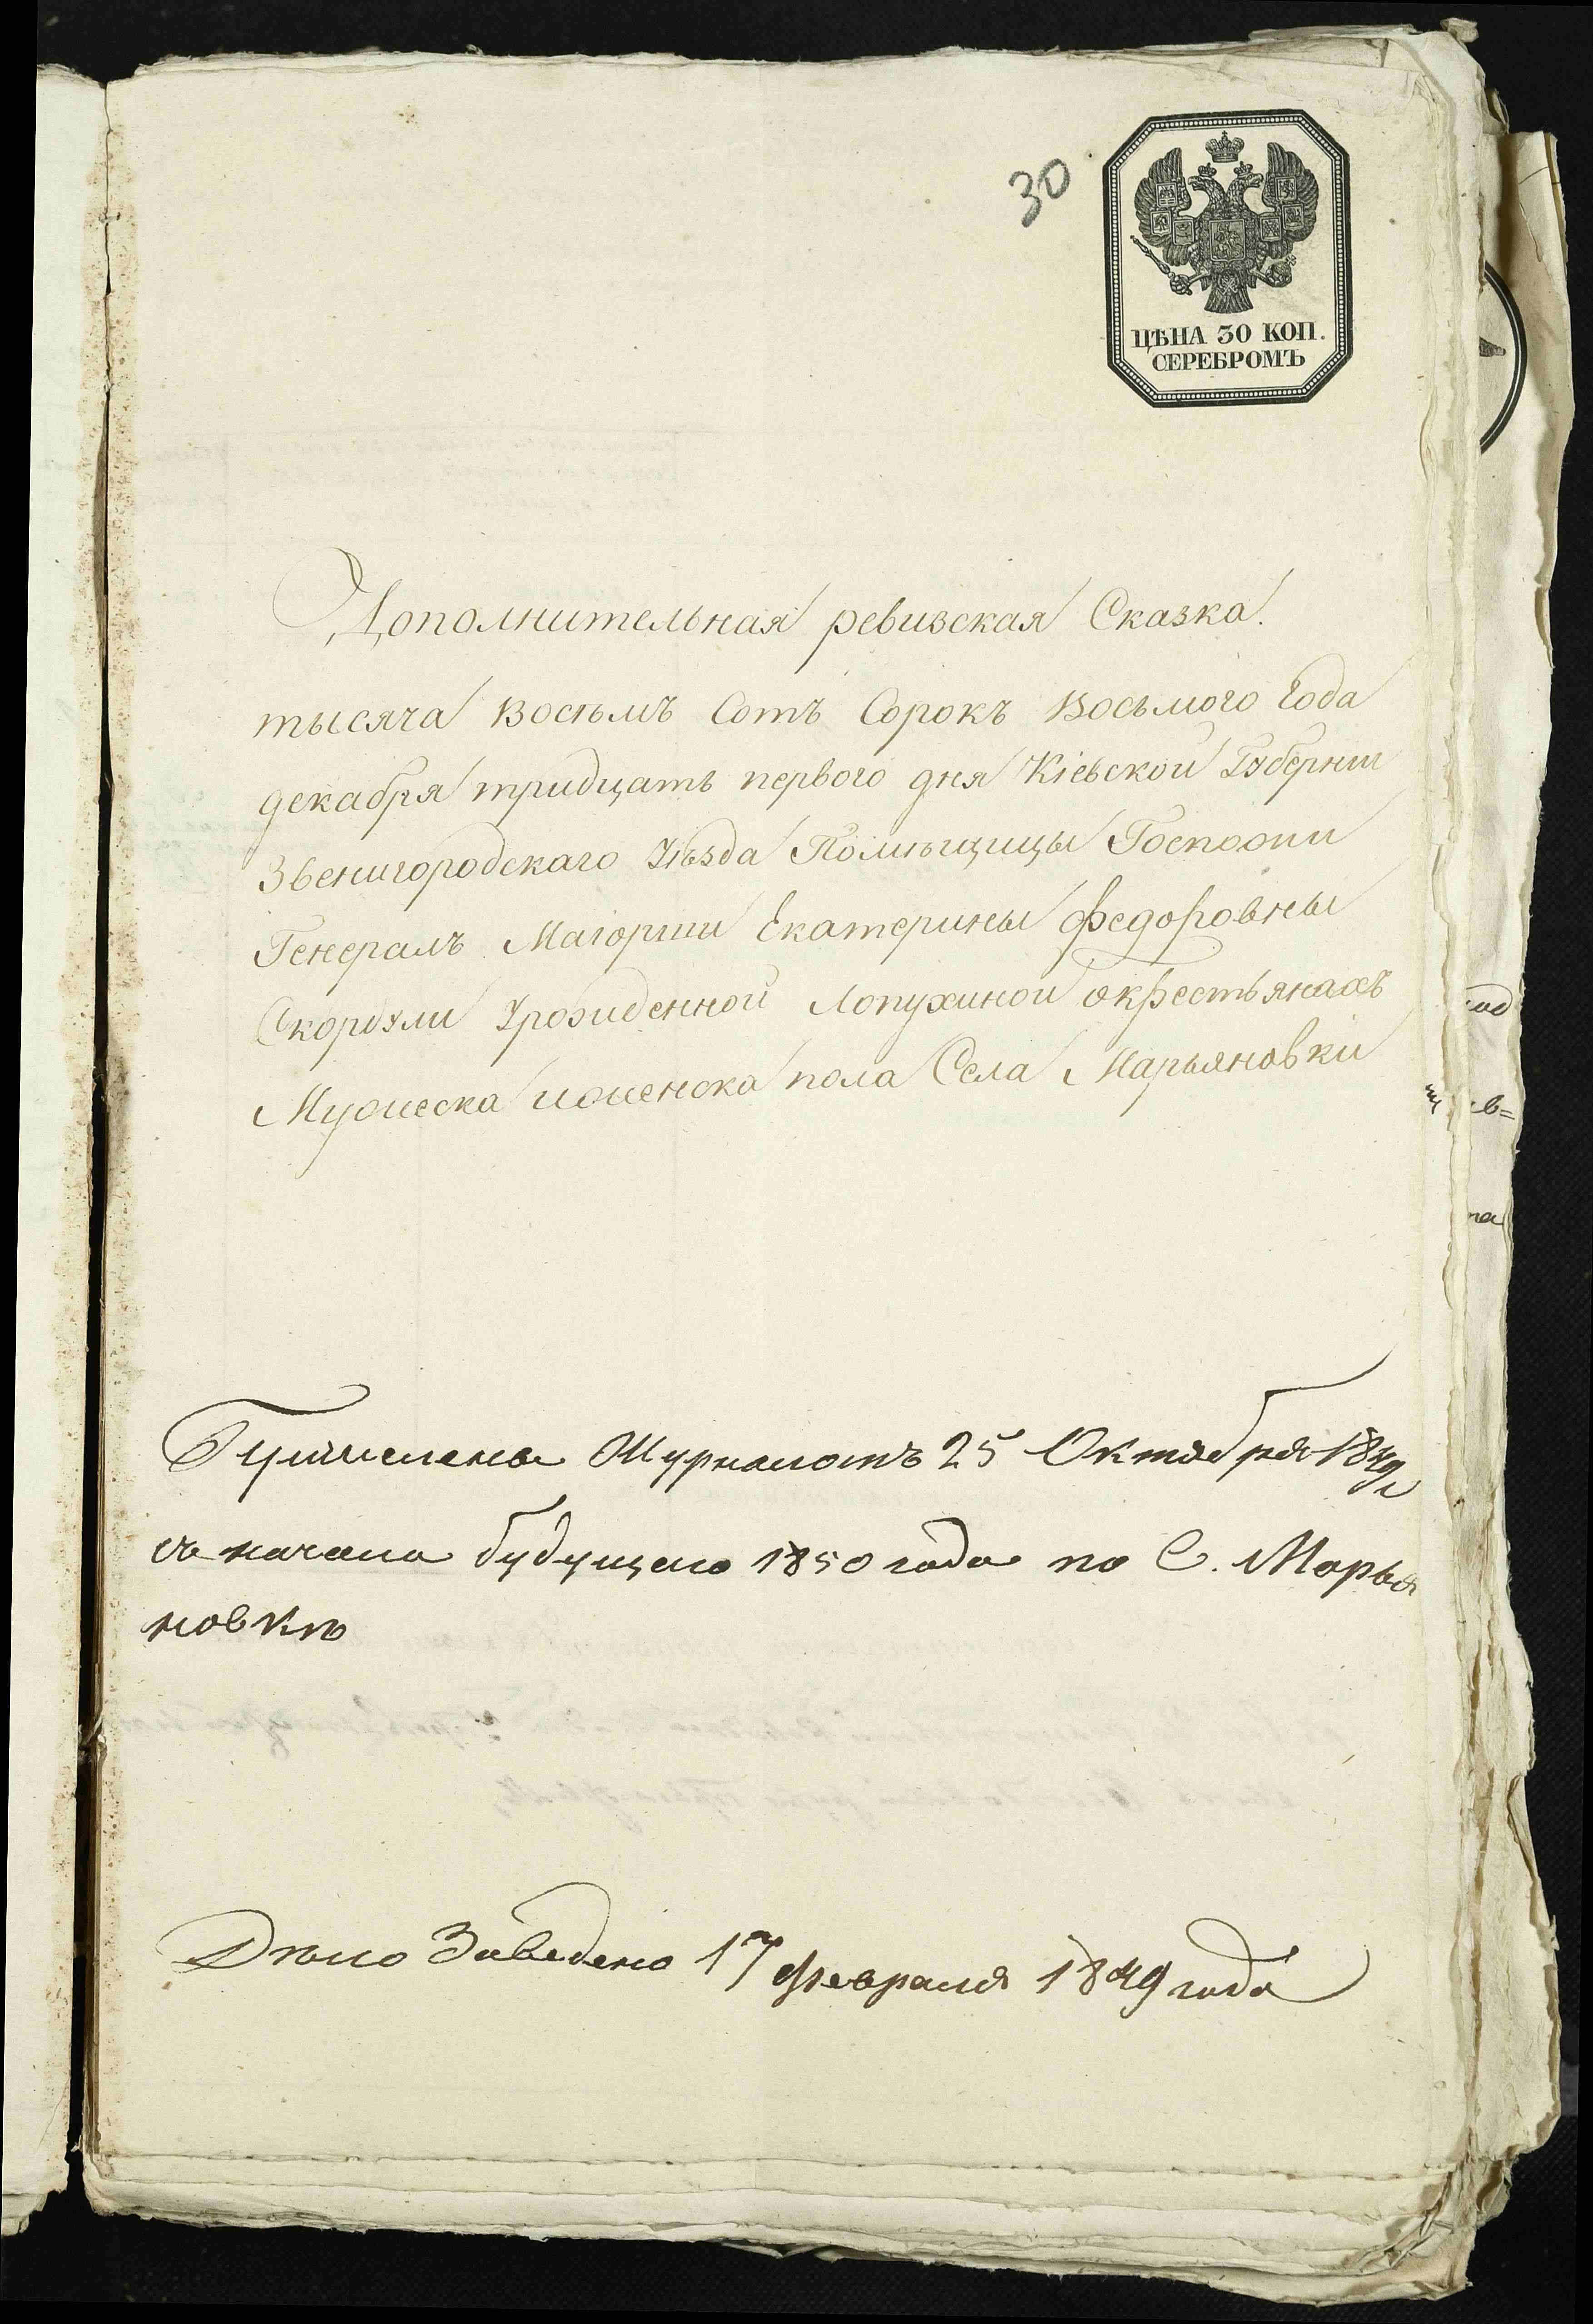 30
ЦѢНА 30 КОП.
СЕРЕБРОМЪ
Дополнительная ревизская Сказка.
тысяча Восемъ Сотъ Сорокъ Восьмого Года
декабря тридцать первого дня Кіевской Губерніи
Звенигородскаго Уѣзда Помѣщицы Госпожи
Генералъ Маіорши Екатерины Федоровны
Скордули Урожденной Лопухиной окрестьянахъ
Мужеска иженска пола Села Марьяновки
Журналомъ 25 Октября 1849
съ начала будущаго 1850 года по С. Марья
новкѣ
Дѣло Заведено 17 февраля 1849 года